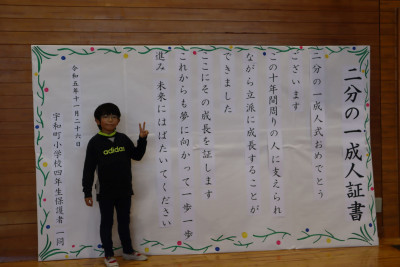 二分の一成人証書
二分の一成人式おめでとう
ございます
この十年間周りの人に支えられ
ながら立派に成長することが
できました
ここにその成長を証します
これからも夢に向かって一歩一歩
進み 未来にはばたいてください
令和五年十一月二十六日
宇和町小学校四年生保護者一同
adidas